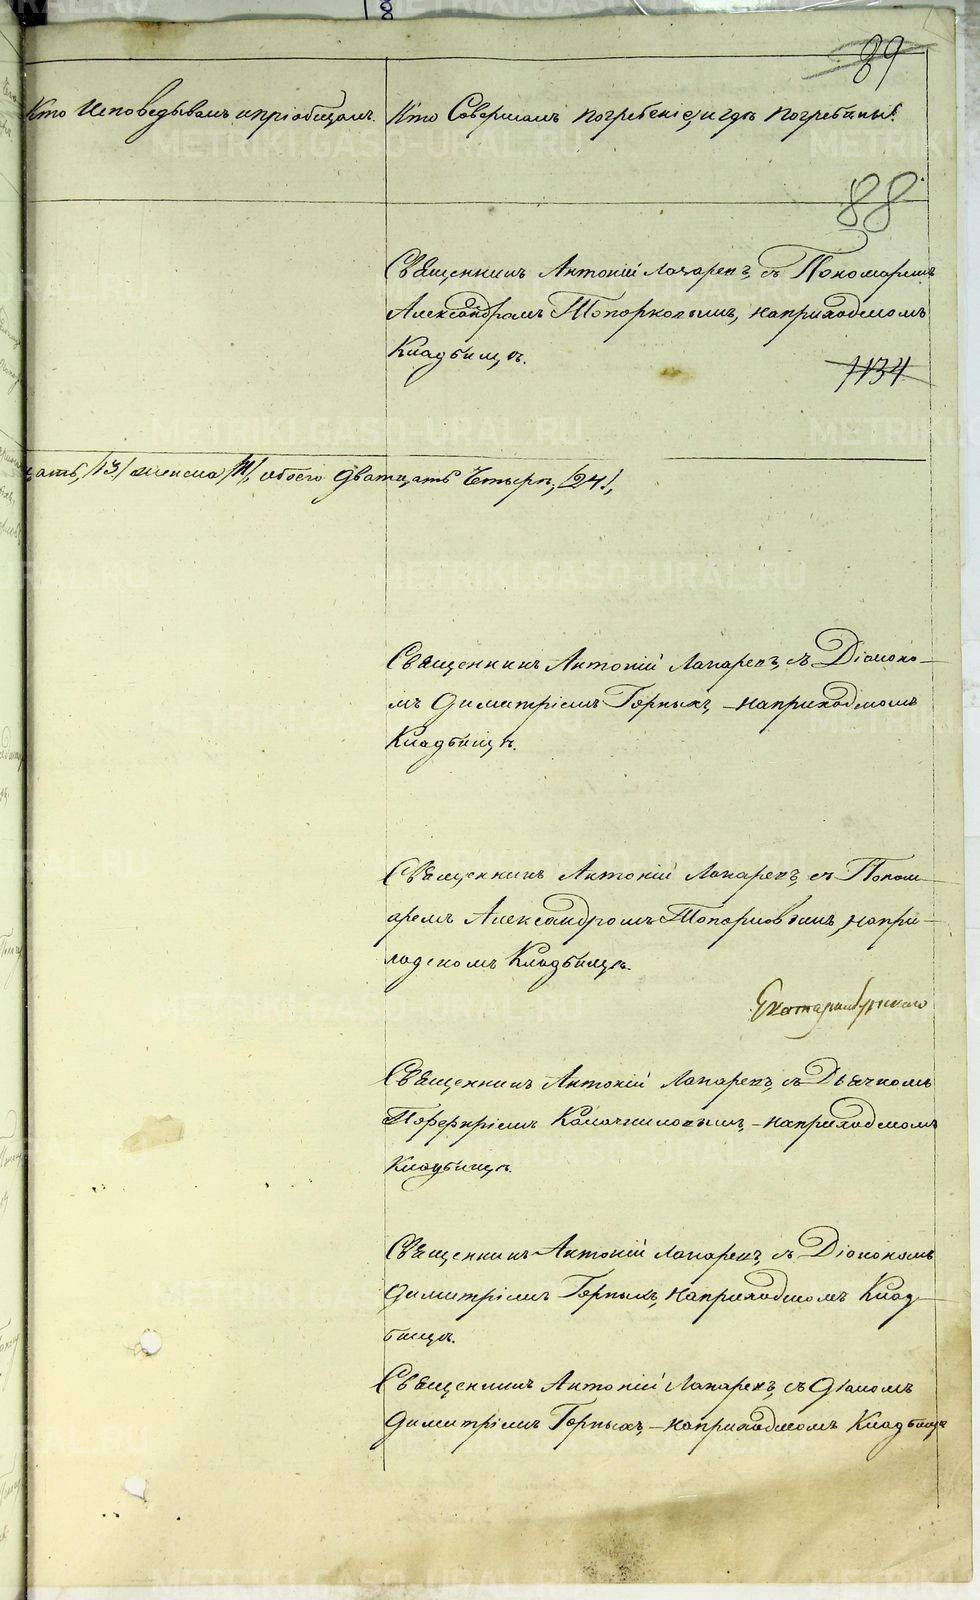 89
Кто Исповедывалъ и пріобщалъ.
Кто Совершалъ погребеніе, и гдѣ погребены.
88
Священникъ Антоній Лапаревъ, съ Пономаремъ
Александромъ Топорковымъ, на приходскомъ
Кладбищѣ.
1134
цать, /13/ женска /11/, обоего дватцать Четыре, /24/,
Священникъ Антоній Лапаревъ, съ Діаконо-
мъ Димитріемъ Горныхъ, - на приходскомъ
Кладбищѣ.
Священникъ Антоній Лапаревъ, съ Поном-
аремъ Александромъ Топорковымъ, на при-
ходскомъ Кладбищѣ.
Екатеринбургскаго
Священникъ Антоній Лапаревъ, съ Дьячкомъ
Порфиріемъ - на приходскомъ
Кладбищѣ.
Священникъ Антоній Лапаревъ, съ Діакономъ
Димитріемъ Горныхъ, на приходскомъ Клад-
бищѣ.
Священникъ Антоній Лапаревъ, съ Діакомъ
Димитріемъ Горныхъ, - на приходскомъ Кладбищѣ
METRIKI.GASO-URAL.RU